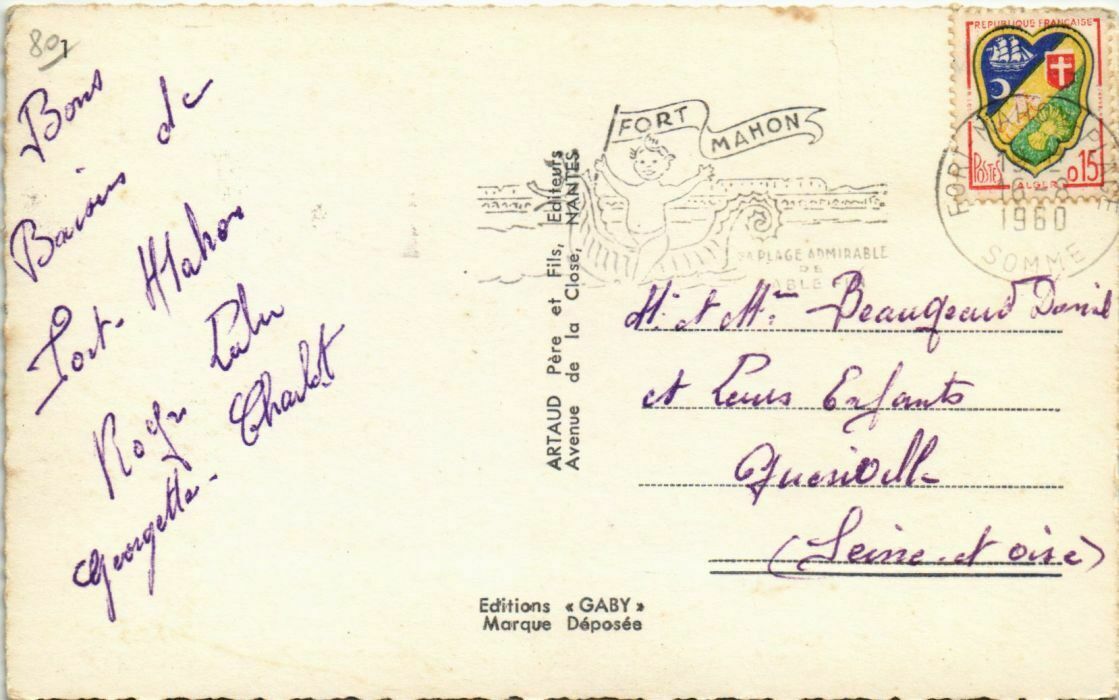 801
Bons
Baisers de
Fort-Mahon
Roger Lulu
Georgette - Charlot
ARTAUD Père et Fils, Editeurs
Avenue de la Close, NANTES
Editions « GABY »
Marque Déposée
FORT MAHON
SA PLAGE ADMIRABLE
DE
REPUBLIQUE FRANÇAISE
POSTES ALGER 0,15
FORT MAHON PLAGE
1960
SOMME
M. et Mme Beaugeard Daniel
et Leurs Enfants
(Seine-et-oise)